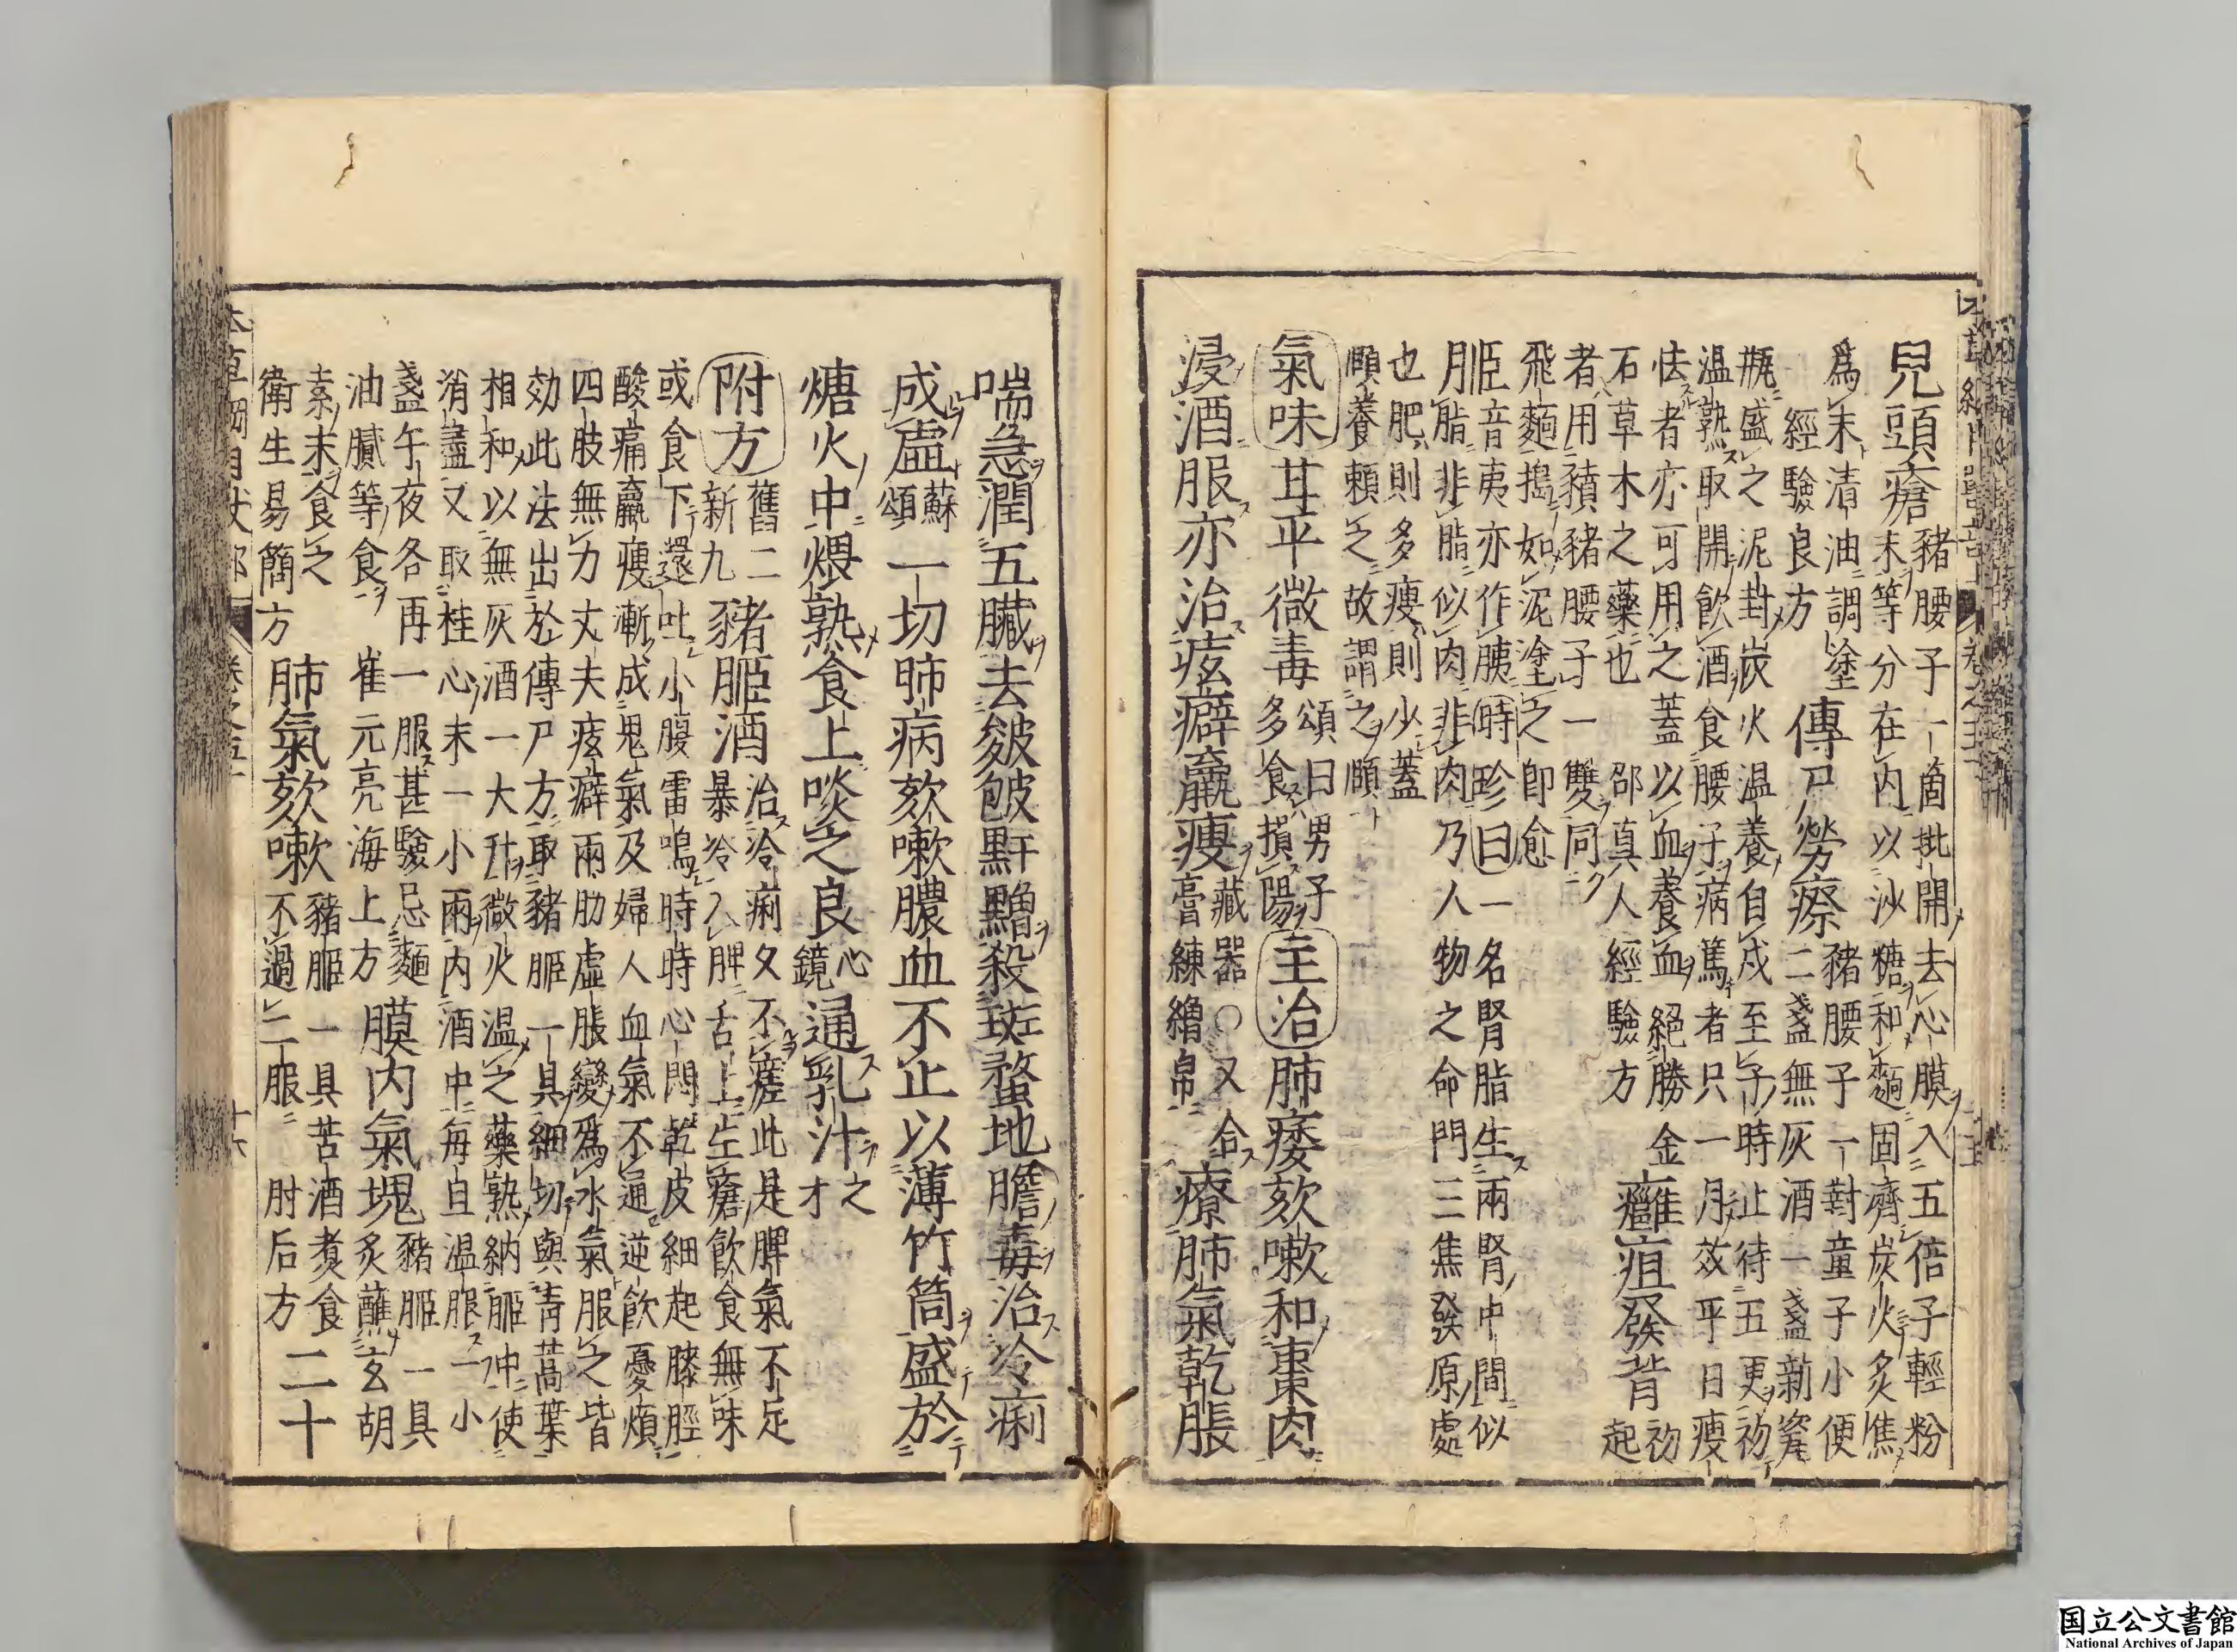 兒頭瘡豬腰子一箇批開去心膜入五倍子輕粉
末等分在内以沙糖和麺固濟炭火炙焦
爲末清油調塗
經驗良方
傳尸勞瘵豬腰子一對童子小便
二盞無灰酒一盞新瓷
瓶盛之泥封炭火温養自戌至子時止待五更初
温熟取開飲酒食腰子病篤者只一月效平日瘦
怯者亦可用之蓋以血養血絕勝金
石草木之藥也 邵真人經驗方
癰疽發背初
起
者用豶豬腰子一雙同
飛麺搗如泥塗之即愈
臣音夷亦作胰時珍曰一名腎脂生兩腎中間似
月脂非脂似肉非肉乃人物之命門三焦發原處
也肥則多瘦則少蓋
頤養賴之故謂之頤
氣味甘平微毒頌曰男子
多食損陽
主治肺痿欬嗽和棗肉
浸酒服亦治痃癖羸瘦藏器○又合
膏練繒帛
療肺氣乾脹
喘急潤五臟去皴皰䵟殺斑蝥地膽毒治冷痢
成虛蘇
頌
一切肺病欬嗽膿血不止以薄竹筒盛於
煻火中煨熟食上啖之良心
鏡
通乳汁之
才
附方舊二
新九
豬⿰月臣酒治冷痢久不瘥此是脾氣不足
暴冷入脾舌上生瘡飲食無味
或食下還吐小腹雷鳴時時心悶乾皮細起膝脛
酸痛羸瘦漸成鬼氣及婦人血氣不通逆飲憂煩
四肢無力丈夫痃癖兩肋虛脹變爲水氣服之皆
効此法出於傳尸方取豬⿰月臣一具細切與青蒿葉
相和以無灰酒一大升微火温之藥熟納⿰月臣中使
消盡又取桂心末一小兩内酒中每旦温服一小
盞午夜各再一服甚驗忌麺
油膩等食 崔元亮海上方
膜内氣塊豬⿰月臣一具
炙蘸玄胡
素末食之
衛生易簡方
肺氣欬嗽豬⿰月臣一具苦酒煮食
不過二服 肘后方
二十
国立公文書館
National Archives of Japan